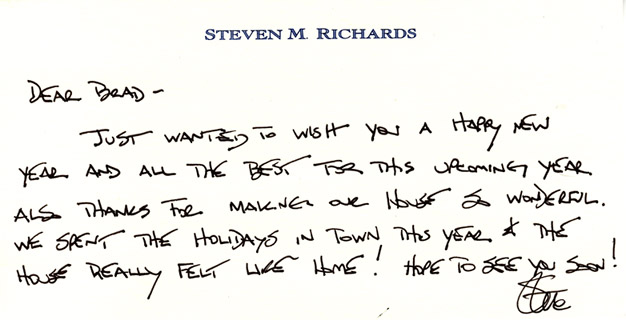 STEVEN M. RICHARDS
DEAR BRAD -
JUST WANTED TO WISH YOU A HAPPY NEW
YEAR AND ALL THE BEST FOR THIS UPCOMING YEAR
ALSO THANKS FOR MAKING OUR HOUSE SO WONDERFUL.
WE SPENT THE HOLIDAYS IN TOWN THIS YEAR & THE
HOUSE REALLY FELT LIKE HOME! HOPE TO SEE YOU SOON!
Steve